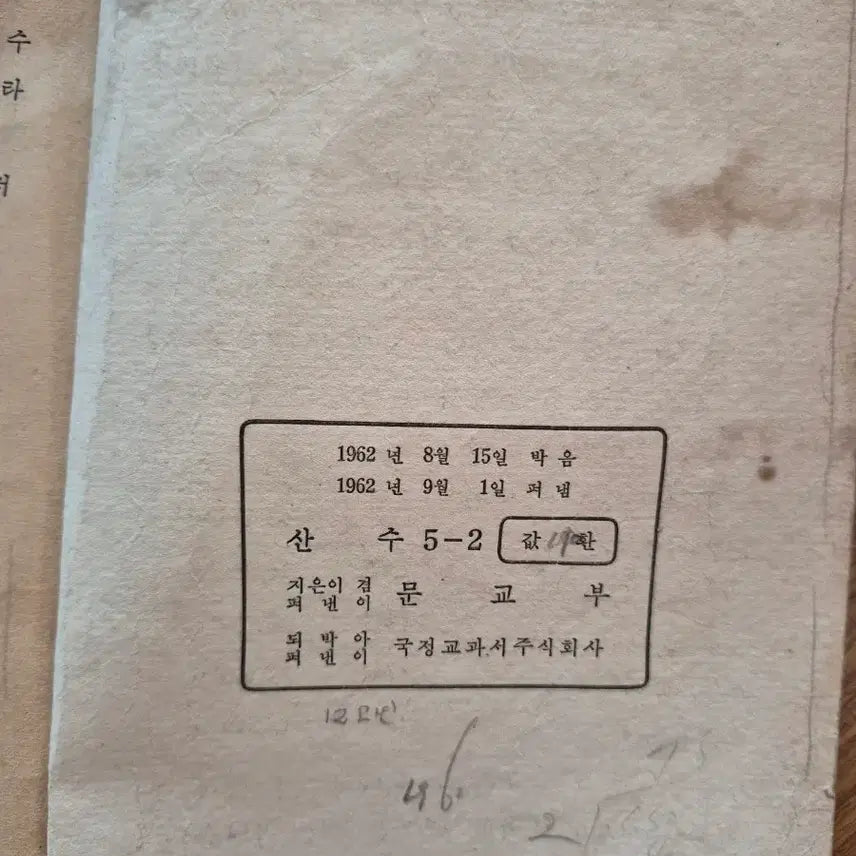 수
타
1962 년 8월 15일 박음
1962 년 9월 1일 펴냄
산 수 5-2 값 환
지은이 겸
펴 낸 이 문 교 부
되 박 아
펴 낸 이 국정교과서주식회사